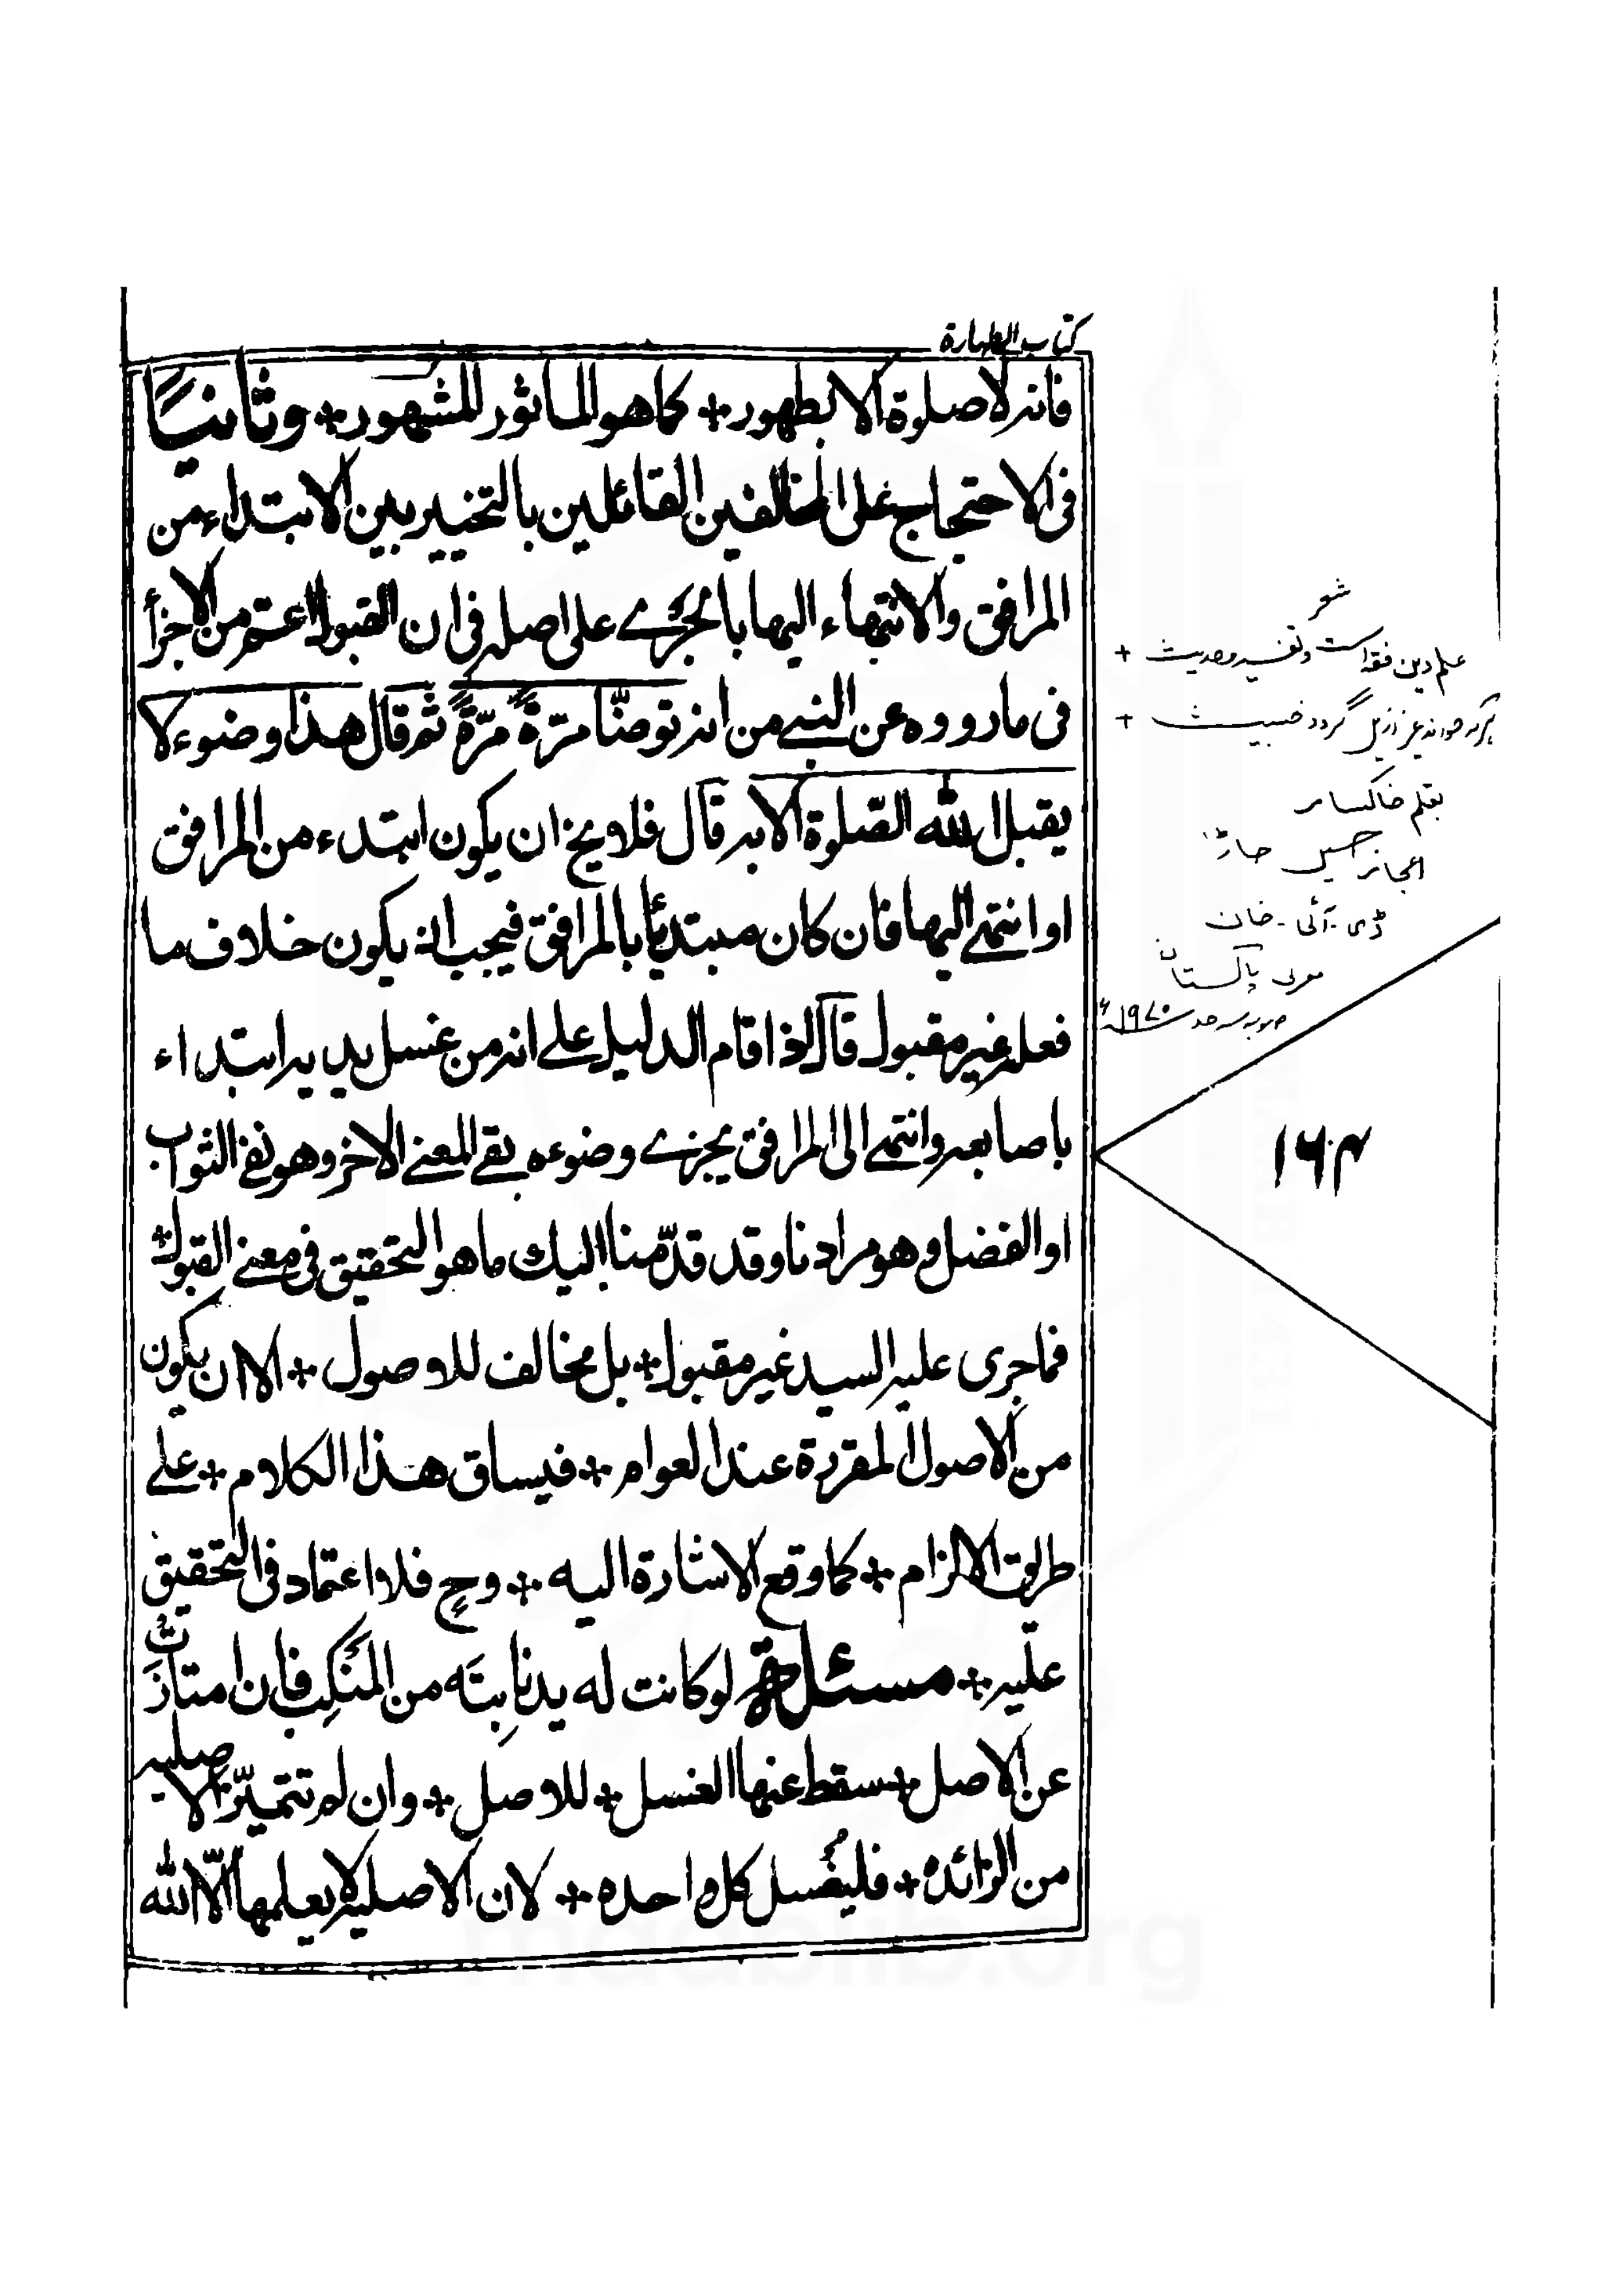 كتاب الطهارة
فانه لا صلوة الا بطهور + كما هو الماثور المشهور + وثانيًا
فى الاحتجاج على المخالفين القائلين بالتخيير بين الابتداء من
المرافق والانتهاء اليها بالجرے على اصله فى ان القبول اعم من الاجزأ
فى ما رووه عن النبے من انه توضّأ مرّةً مرّةً ثم قال هذا وضوء لا
يقبل الله الصّلوة الا به قال فلا يخ ان يكون ابتدء من المرافق
او انتهے اليها فان كان مبتدئا بالمرافق فيجب ان يكون خلاف ما
فعله غير مقبول قال اذا قام الدليل علے انه من غسل يديه ابتداء
باصابعه وانتهے الى المرافق يجزے وضوءه بقے المعنے الاخر وهو نفے الثواب
او الفضل وهو مرادنا وقد قدّمنا اليك ما هو التحقيق فى معنے القبول +
فما جرى عليه السيد غير مقبول + بل مخالف للاصول + الا ان يكون
من الاصول المقررة عند العوام + فيساق هذا الكلام + علے
طريق الالزام + كما وقع الاشارة اليه + وح فلا اعتماد فى التحقيق
عليه + مسئلة لو كانت له يد نابتَه من المَنكِب فان امتازَت
عن الاصل + سقط عنها الغسل + للاصل + وان لم تتميّز الاصليه
من الزائده + فليغُسل كل واحده + لان الاصليه لا يعلمها الّا الله
شعر
علم دين فقه است و تفسير و حديث +
هر كه خواند غير ازين گردد خبيث +
بقلم خاكسار
اعجاز حسين جاڑا
ڈى - آئى - خان
مغربى پاكستان
صوبه سرحد ١٩٧٠ء
١٦٤
maablib.org